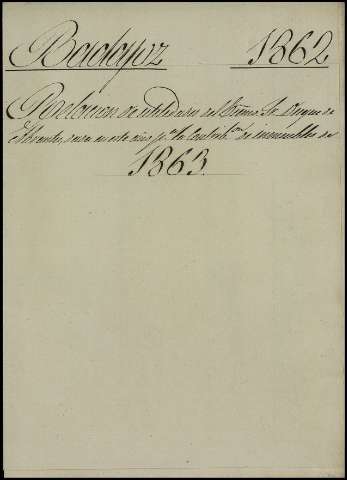 Badajoz 1862
Relacion de utilidades del Exmo. Sr. Duque de
Abrantes, para en este año p.ª la Contrib.on de inmuebles de
1863.